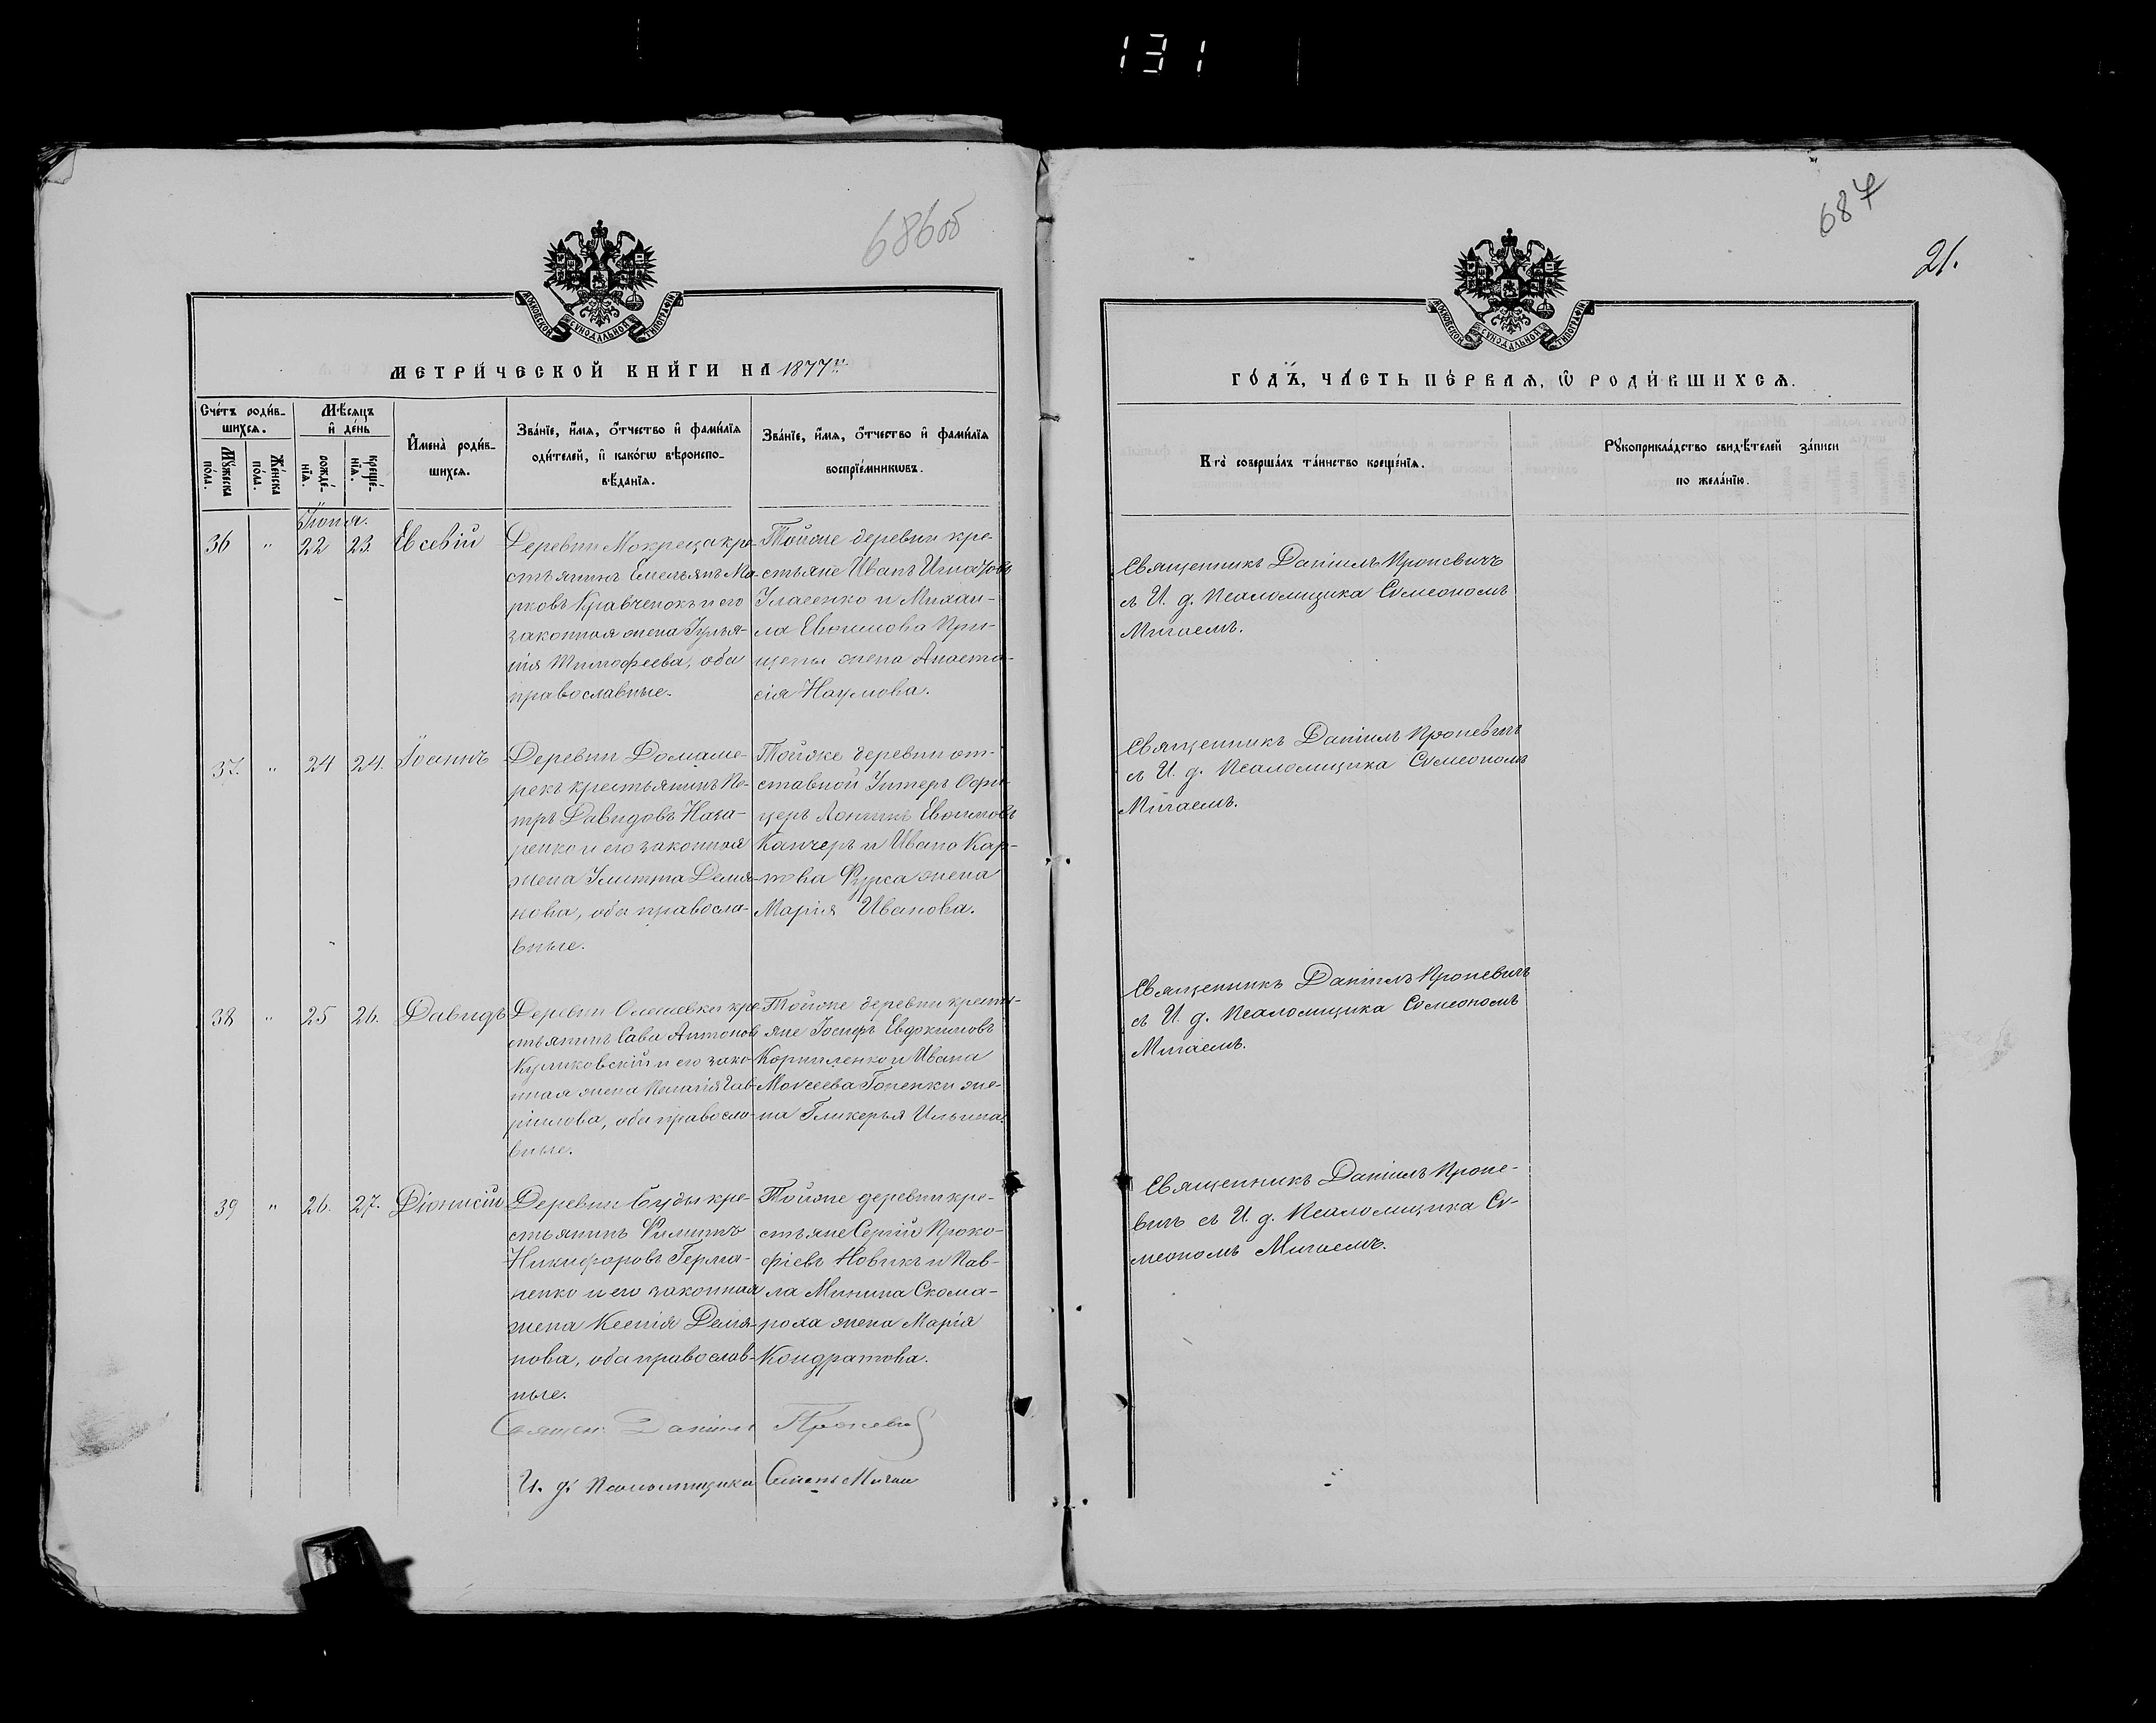 131
686об
МОСКОВСКОЙ СУНОДАЛЬНОЙ ТИПОГРАФІИ
МЕТРИ́ЧЕСКОЙ КНИ́ГИ НА 1877й
Сче́тъ роди́в-
шихсѧ.
Мѣ́сѧцъ
и҆ де́нь
Му́жеска
по́ла.
Же́нска
по́ла.
рожде́-
нїѧ.
креще́-
нїѧ.
И҆мена̀ роди́в-
шихсѧ.
Зва́нїе, и҆́мѧ, ѻ҆́тчество и҆ фами́лїѧ
роди́телей, и҆ како́гѡ вѣроиспо-
вѣ́данїѧ.
Зва́нїе, и҆́мѧ, ѻ҆́тчество и҆ фами́лїѧ
воспрїе́мникѡвъ.
Іюня.
36 " 22 23. Евсевій
Деревни Мокреца кре-
стьянинъ Емельянъ Ма-
рковъ Кравченокъ и его
законная жена Гулья-
нія Тимофеева, оба
православные.
Тойже деревни кре-
стьяне Иванъ Игнатовъ
Уласенко и Михаи-
ла Евфимова При-
жена Анаста-
сія Наумова.
37. " 24 24. Іоаннъ
Деревни Домаме-
рекъ крестьянинъ Пе-
тръ Давидовъ Наза-
ренко и его законная
жена Улитта Демья-
нова, оба правосла-
вные.
Тойже деревни от-
ставной Унтеръ Офи-
церъ Лонгинъ Евфимовъ
Канчеръ и Ивана Кар-
пова Фурса жена
Марія Иванова.
38 " 25 26. Давидъ
Деревни Олешевки кре-
стьянинъ Сава Антоновъ
Куликовскій и его зако-
нная жена Пелагія Гав-
ріилова, оба правосла-
вные.
Тойже деревни кресть-
яне Іосифъ Евдокимовъ
Корниленко и Ивана
Мокеева Гопенки же-
на Гликерья Ильина.
39 " 26. 27. Діонисій
Деревни Буды кре-
стьянинъ Филиппъ
Никифоровъ Герма-
ненко и его законная
жена Ксенія Демья-
нова, оба православ-
ные.
Тойже деревни кре-
стьяне Сергій Проко-
фіевъ Новикъ и Пав-
ла Минина Скома-
роха жена Марія
Кондратова.
Священ. Даніилъ Проневич
И. д. Псаломщика Симеонъ Мигай
687
21.
МОСКОВСКОЙ СУНОДАЛЬНОЙ ТИПОГРАФІИ
ГО́ДЪ, ЧА́СТЬ ПЕ́РВАѦ, Ѽ РОДИ́ВШИХСѦ.
Кто̀ соверша́лъ та́инство креще́нїѧ.
Рꙋкоприкла́дство свидѣ́телей за́писи
по жела́нїю.
Священникъ Даніилъ Проневичъ
съ И. д. Псаломщика Сѵмеономъ
Мигаемъ.
Священникъ Даніилъ Проневичъ
съ И. д. Псаломщика Сѵмеономъ
Мигаемъ.
Священникъ Даніилъ Проневичъ
съ И. д. Псаломщика Сѵмеономъ
Мигаемъ.
Священникъ Даніилъ Проне-
вичъ съ И. д. Псаломщика Сѵ-
меономъ Мигаемъ.